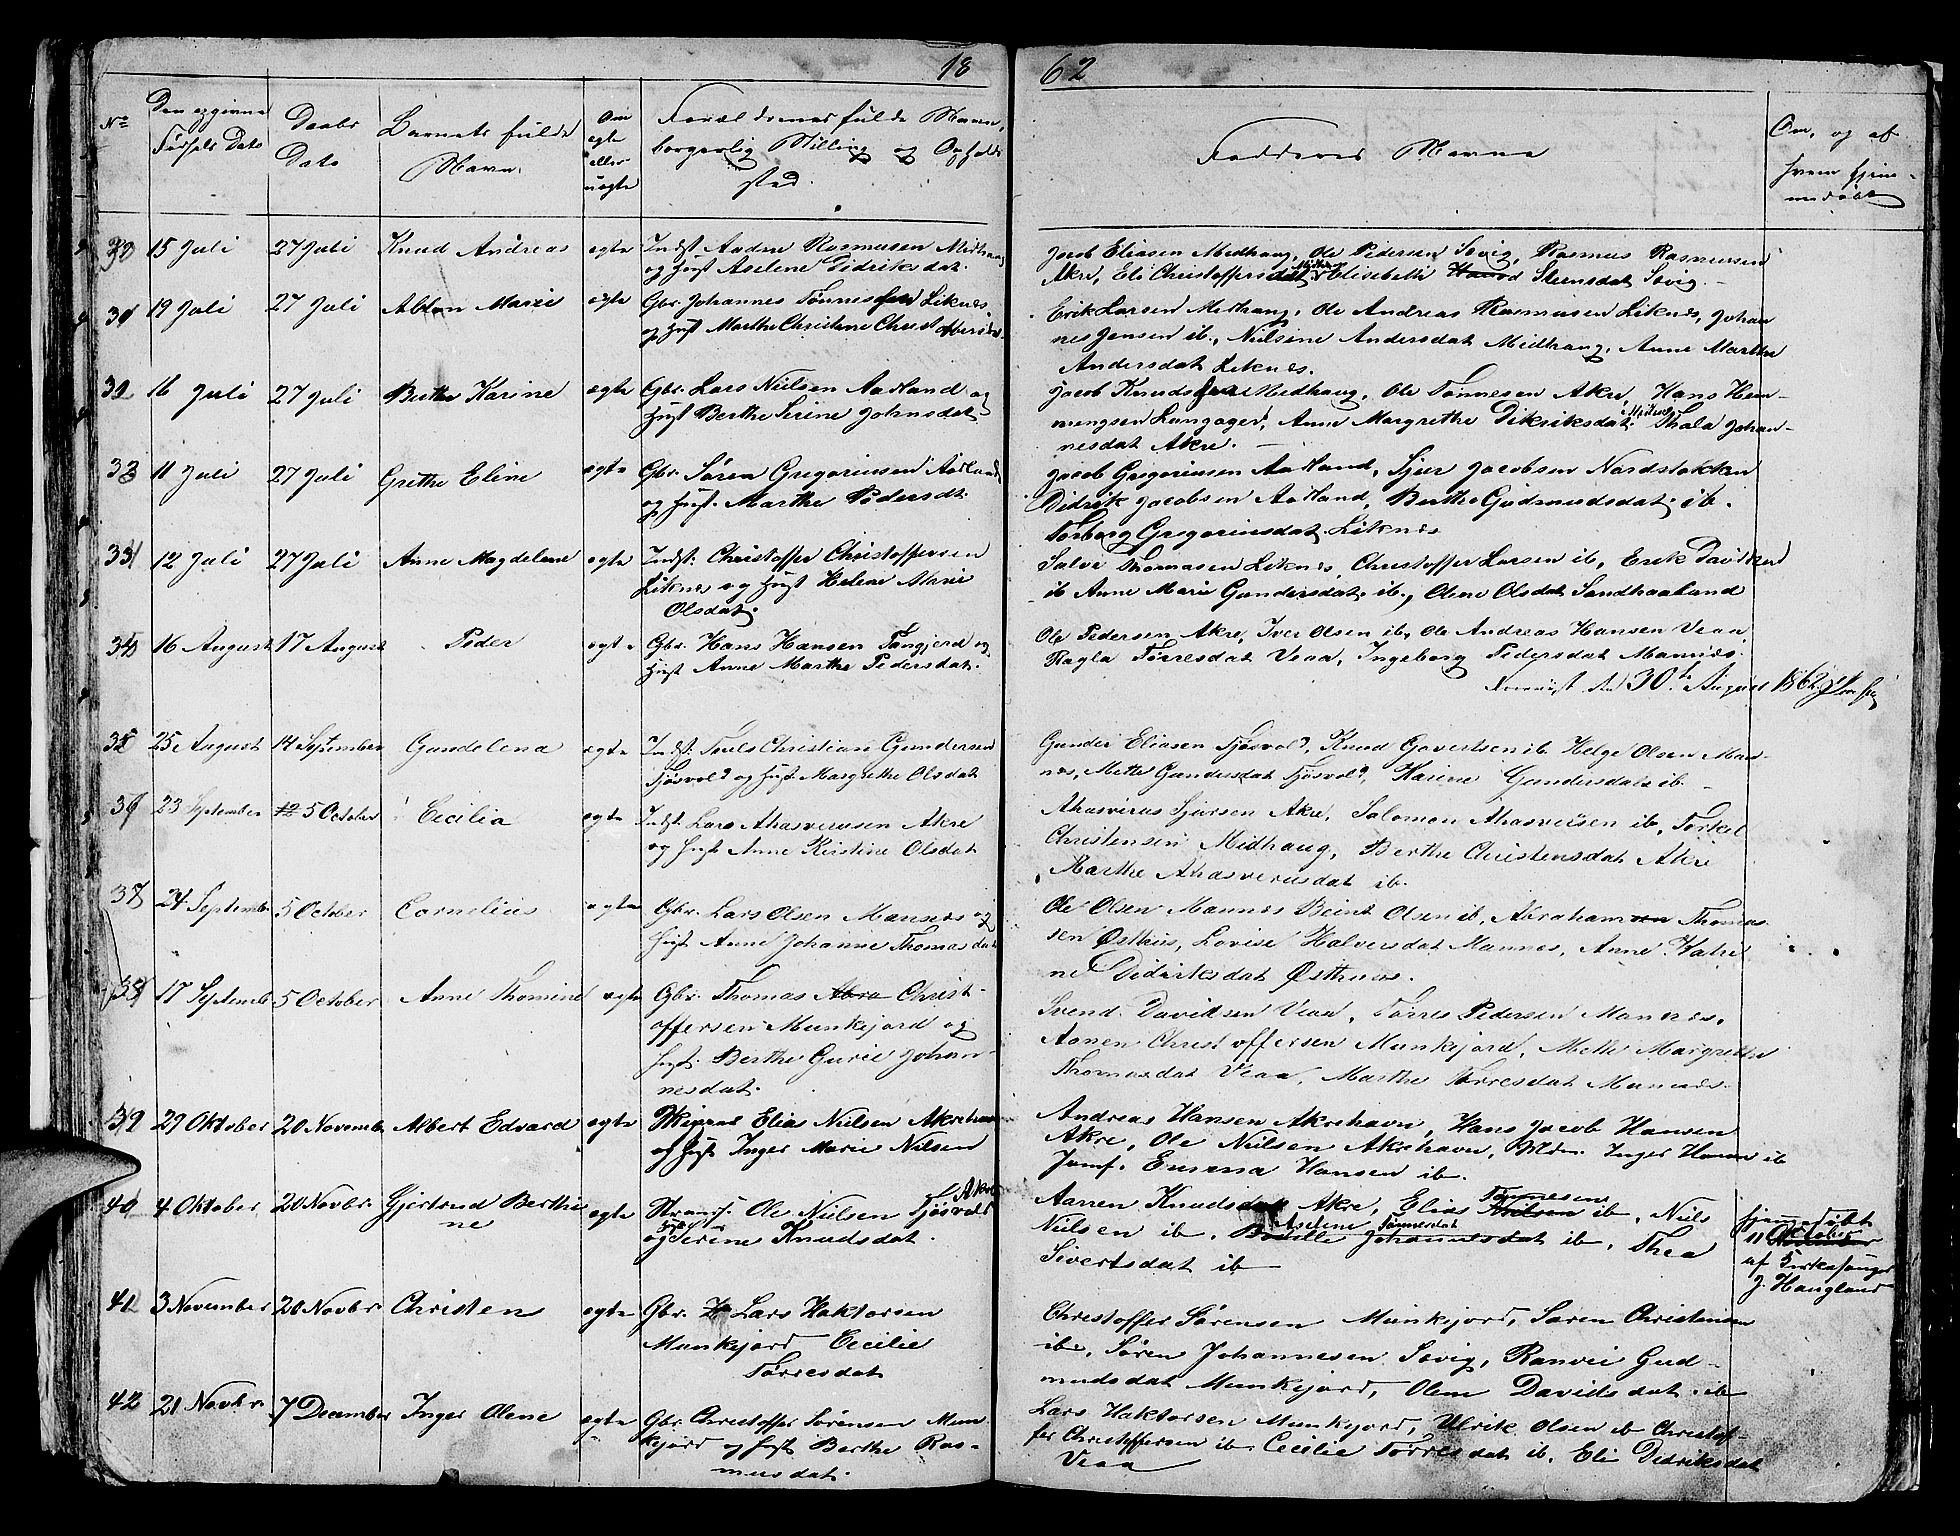 18 62
No
Den opgivne Fødsels Dato
Daabs Dato
Barnets fulde Navn.
Om egte eller uegte
Forældrenes fulde Navn, borgerlig Stilling og Opholds sted.
Faddernes Navne
Om, og af hvem hjemmedøbt
30 15 Juli 27 Juli Knud Andreas egte Indst. Aadne Rasmusen Midhaug
og Hust Aselene Didriksdat.
Jacob Eliasen Medhaug, Ole Pedersen Sevig, Rasmus Rasmusen
Akre, Eli Christoffersdat Midhaug Elisebeth Steensdat Sevig.
31 19 Juli 27 Juli Marie egte Gbr. Johannes Tønnesen Liknes,
og Hust Marthe Christine Christoffersdat.
Erik Larsen Medhaug, Ole Andreas Rasmusen Liknes, Johan
nes Jensen ib., Nielsine Andersdat Midhaug, Anne Marthe
Andersdat Liknes.
32 16 Juli 27 Juli Berthe Karine egte Gbr. Lars Nielsen Aadland og
Hust Berthe Serine Johnsdat.
Jacob Knudsen Medhaug, Ole Tønnesen Akre, Hans Hem-
mingsen Langager, Anne Margrethe Dikriksdat. Midhaug Thala Johan-
nesdat Akre.
33 11 Juli 27 Juli Grethe Eline egte Gbr. Søren Gregoriusen Aadland
og Hust. Marthe Pedersdt.
Jacob Gregoriusen Aadland, Sjur Jacobsen Nordstokken
Didrik Jacobsen Aadland, Berthe Gudmundsdat. ib.
Torborg Gregoriusdat Liknes
12 Juli 27 Juli Anne Magdelene egte Indst. Christoffer Christoffersen
Liknes og Hust Helene Marie
Olsdat.
Salve Thomasen Liknes, Christoffer Larsen ib, Erik Davidsen
ib Anne Marie Gundersdat. ib., Olene Olsdat Sandhaaland
34 16 August 17 August Peder egte Gbr. Hans Hansen Tangjerd og
Hust Anne Marthe Pedersdat.
Ole Pedersen Akre, Iver Olsen ib, Ole Andreas Hansen Veaa,
Ragla Tørresdat Veaa, Ingeborg Pedersdat Mannes.
30te August 1862
35 25 August 14 September Gundelena egte Indst. Christian Gundersen
Tjøsvold og Hust Margrethe Olsdat
Gunder Eliasen Tjøsvold, Knud Govertsen ib Helge Olsen Man-
nes, Mette Gundersdat Tjøsvold, Karine Gundersdat ib.
36 23 September 5 October Cecilia egte Indst. Lars Ahasverusen Akre
og Hust Anne Kirstine Olsdat
Ahasverus Sjursen Akre, Salomon Ahasverusen ib, Torkel
Christensen Midhaug, Berthe Christensdat Akre
Marthe Ahasverusdat ib.
37 24 September 5 October Cornelius egte Gbr. Lars Olsen Mannes og
Hust Anne Johanne Thomasdat
Ole Olsen Mannes Beint Olsen ib, Abraham Thomas
sen Østhus, Lovise Halversdat Mannes, Anne Katri
ne Didriksdat Østhuus.
38 17 September 5 October Anne Thomine egte Gbr. Thomas Abra Christ-
offersen Munkejord og
Hust. Berthe Gurie Johan-
nesdat.
Svend Davidsen Veaa, Torres Pedersen Mannes.
Aanen Christoffersen Munkejord, Mette Margrethe
Thomasdat Veaa, Marthe Tørresdat Mannes.
39 29 Oktober 20 November Albert Edvard egte Skipper Elias Nielsen Akrehavn
og Hust Inger Marie Nielsen
Andreas Hansen Akrehavn, Hans Jacob Hansen
Akre, Ole Nielsen Akrehavn, Mdm. Inger Hansen ib
Jomf. Emma Hansen ib.
40 4 Oktober 20 Novbr. Gjertrud Berthi
ne egte Ole Nielsen Tjøsvold Akre
og Hust Serine Knudsdat.
Aanen Knudsen Akre, Elias Nielsen Tønnesen ib, Niels
Nielsen ib. Bodille Johannesdat Aselene Tønnesdat ib. Thea
Sivertsdat ib
hjemmedøbt
11 November Oktober
af Kirkesanger
J. Haugland
41 3 November 20 Novbr. Christen egte Gbr. Lars Haktorsen
Munkejord Cecilie
Tørresdat
Christoffer Sørensen Munkejord, Søren Christensen
ib., Søren Johannesen Sevig, Ranvei Gud-
mundsdat Munkejord, Olene Davidsdat ib
42 21 Novbr. 7 December Inger Olene egte Gbr. Christoffer Sørensen Mun-
kejord og Hust Berthe Ras-
musdat.
Lars Haktorsen Munkejord, Ulrik Olsen ib Christof-
fer Christoffersen ib. Cecilie Tørresdat ib. Eli Didriksdat
Veaa